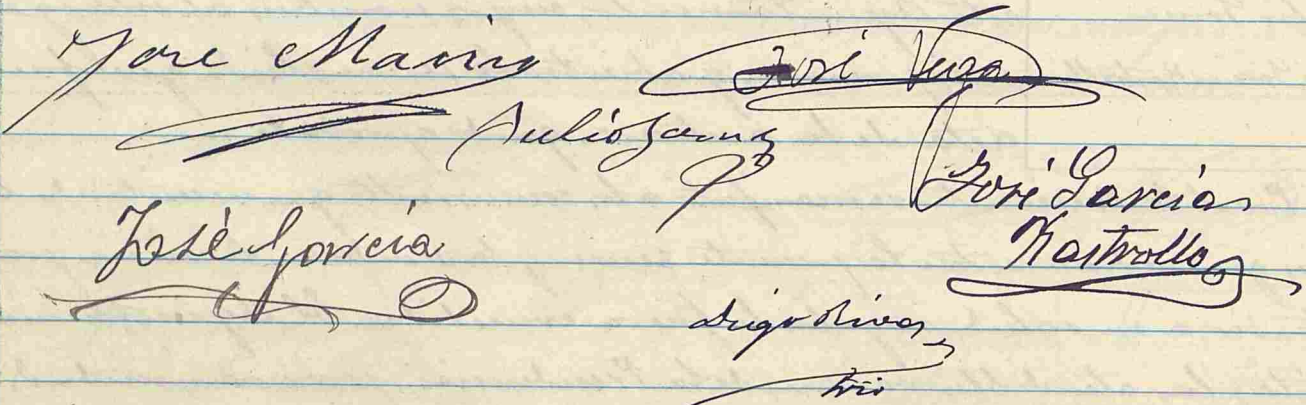 Jose Marin
José Vega
Julio
José Garcia
José Garcia
Rastrollo
Diego Rivas